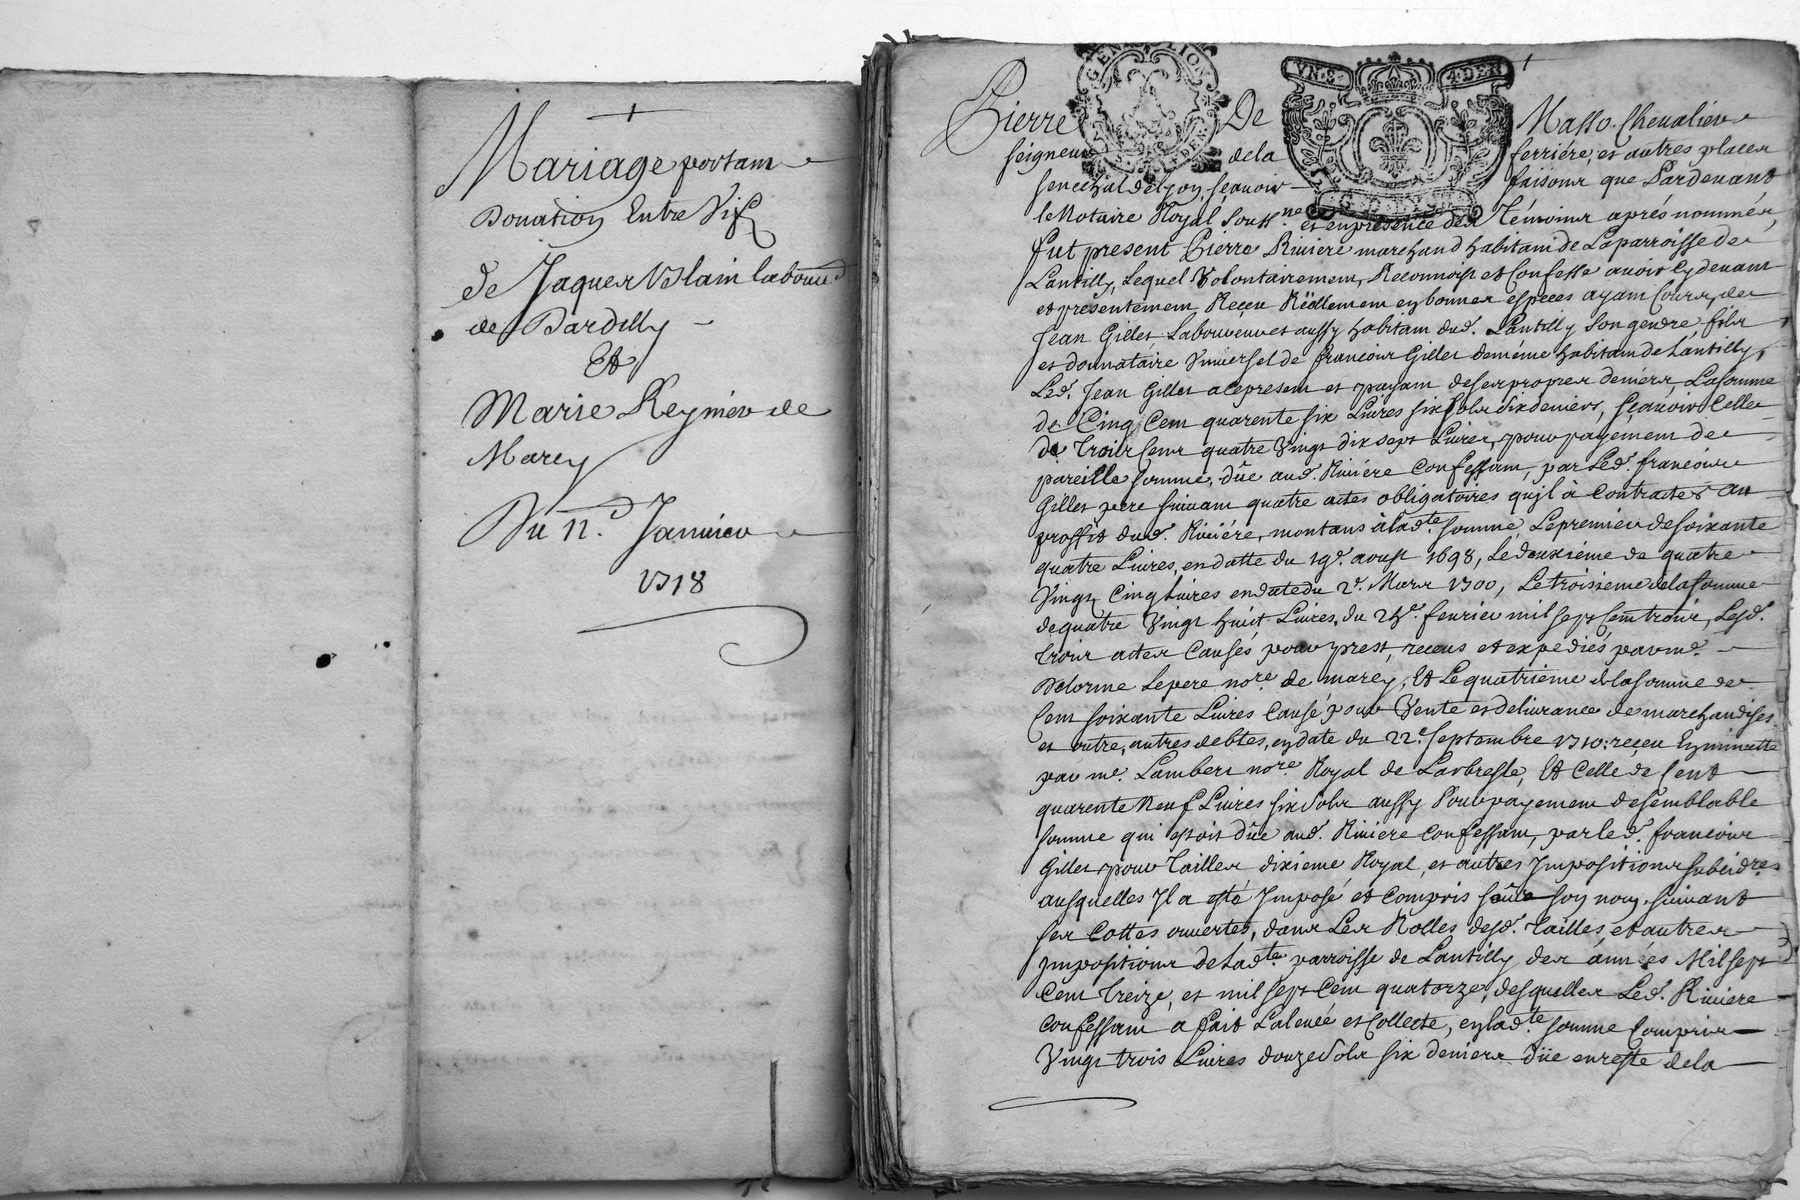 Mariage portant
Donation Entre Vifs
de Jaques Vslain laboureur
de Dardilly
Et
Marie Reynier de
Marcy
Du 11.e Janvier
1718
GEN LION
VN·S· 4·DEN
Pierre De Masso Chevalier
seigneur de la ferriere, et autres places
senechal de Lyon sçavoir faisons que Pardevant
le Notaire Royal souss.né et en presence des Témoins aprés nommés,
fut present Pierre Riviere marchand habitant de La parroisse de
Lantilly, Lequel Volontairement, Reconnoist et Confesse avoir Cy devant
et présentement Reçeu Réellement en bonnes especes ayant Cours, de
Jean Gillet, Laboureur et aussy habitant dud. Lantilly, son gendre, fils
et donnataire Vniversel de françois Gillet de méme habitant de Lantilly,
Led. Jean Gillet ace present et payant de ses propres deniers, La somme
de Cinq Cent quarente six Livres six sols six deniers, sçavoir Celle
de trois Cent quatre Vingt dix sept Livres, pour payement de
pareille somme, dûe aud. Riviere Confessant, par Led. françois
Gillet pere suivant quatre actes obligatoires qu'jl à Contractés au
proffit dud. Riviére, montans à lad.te somme, Le premier de soixante
quatre Livres, en datte du 19.e aoust 1698, Le deuxiéme de quatre
Vingt Cinq Livres en date du 2.e Mars 1700, Le troisieme de la somme
de quatre Vingt huit Livres, du 25.e fevrier mil sept Cent trois, Lesd.
trois actes Causés pour prest, receus et expediés par me.
Delorme Le pere no.re de marcy, Et Le quatriéme de la somme de
Cent soixante Livres Causé pour Vente et delivrance de marchandises
et outre, autres debtes, en date du 22.e septembre 1710: reçeu En minutte
par me. Lambert no.re Royal de Larbresle, Et Celle de Cent
quarente Neuf Livres six sols aussy Pour payement de semblable
somme qui estoit dûe aud. Riviere Confessant, par led. françois
Gillet pour Tailles dixieme Royal, et autres Jmpositions subsid.res
ausquelles Jl a esté Jmposé et Compris sous son nom, suivant
ses Cottes ouvertes, dans Les Rolles desd. Tailles, et autres
jmpositions de Lad.te parroisse de Lantilly des années Mil sept
Cent treize, et mil sept Cent quatorze, desquelles Led. Riviere
Confessant a fait La levée et Collecte, en lad.te somme Compris
Vingt trois Livres douze sols six deniers düe en reste de la